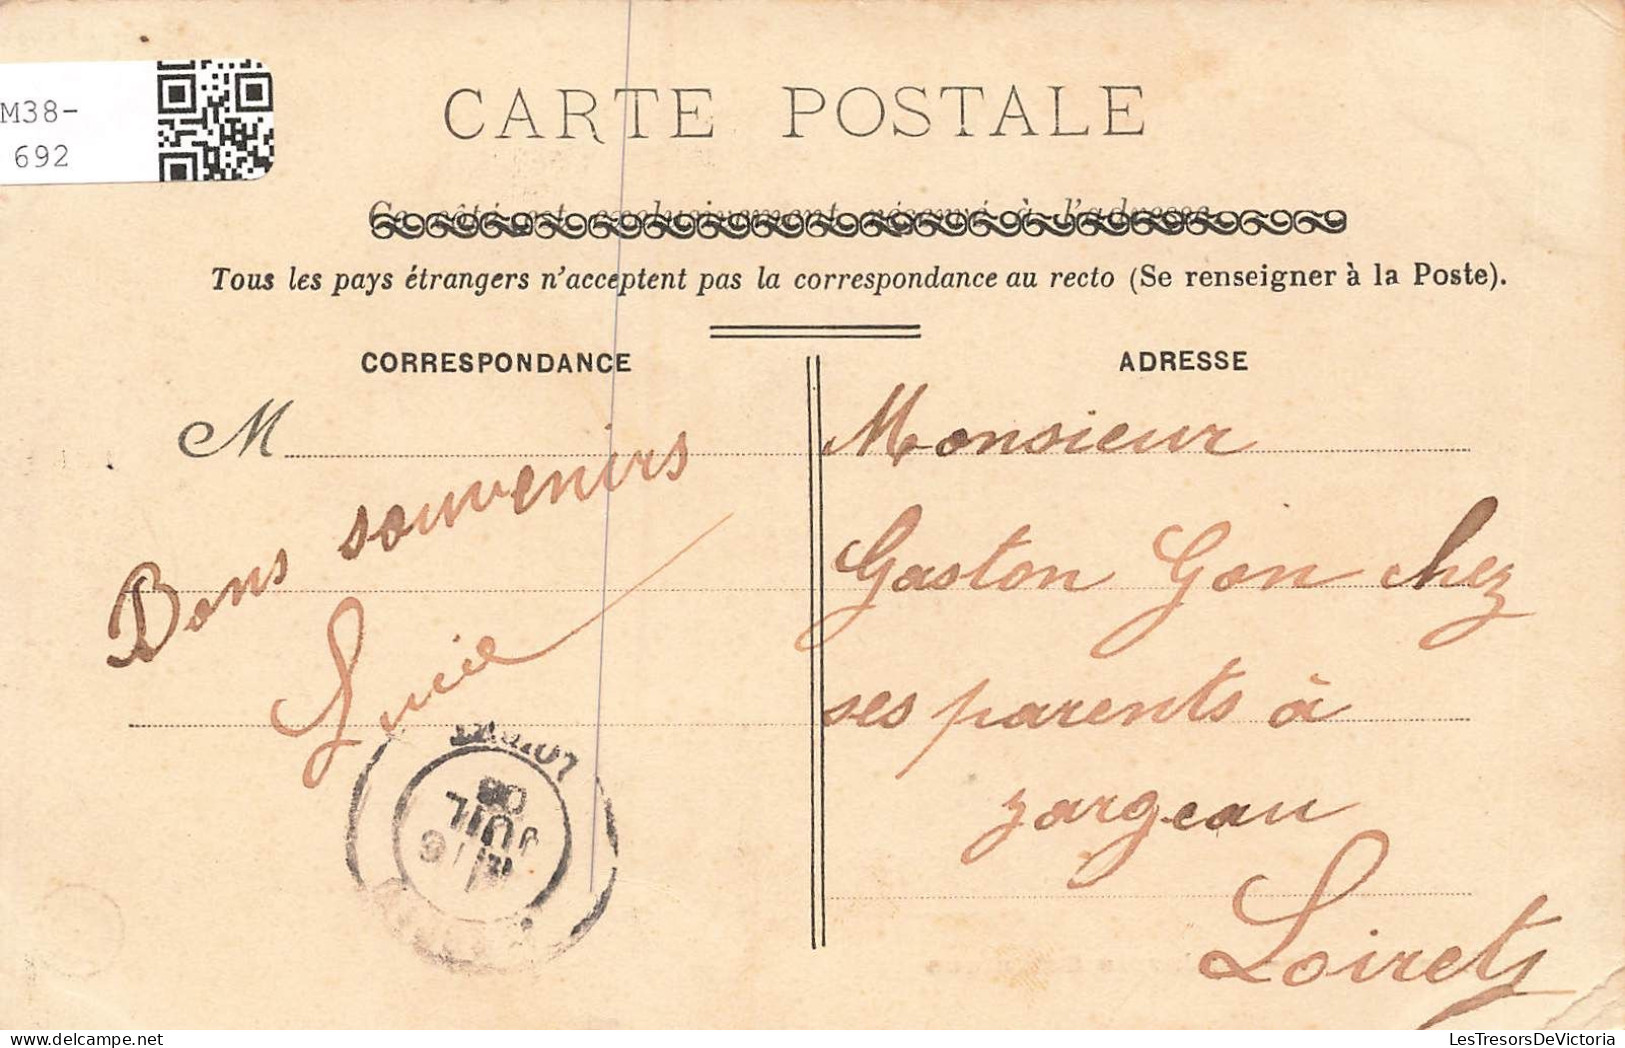 M38-
692
CARTE POSTALE
Ce côté est exclusivement réservé à l'adresse
Tous les pays étrangers n'acceptent pas la correspondance au recto (Se renseigner à la Poste).
CORRESPONDANCE
M
Bons souvenirs
Lucie
LOIRET
JUIL
08
ADRESSE
Monsieur
Gaston Gon chez
ses parents à
Jargeau
Loiret
LesTresorsDeVictoria